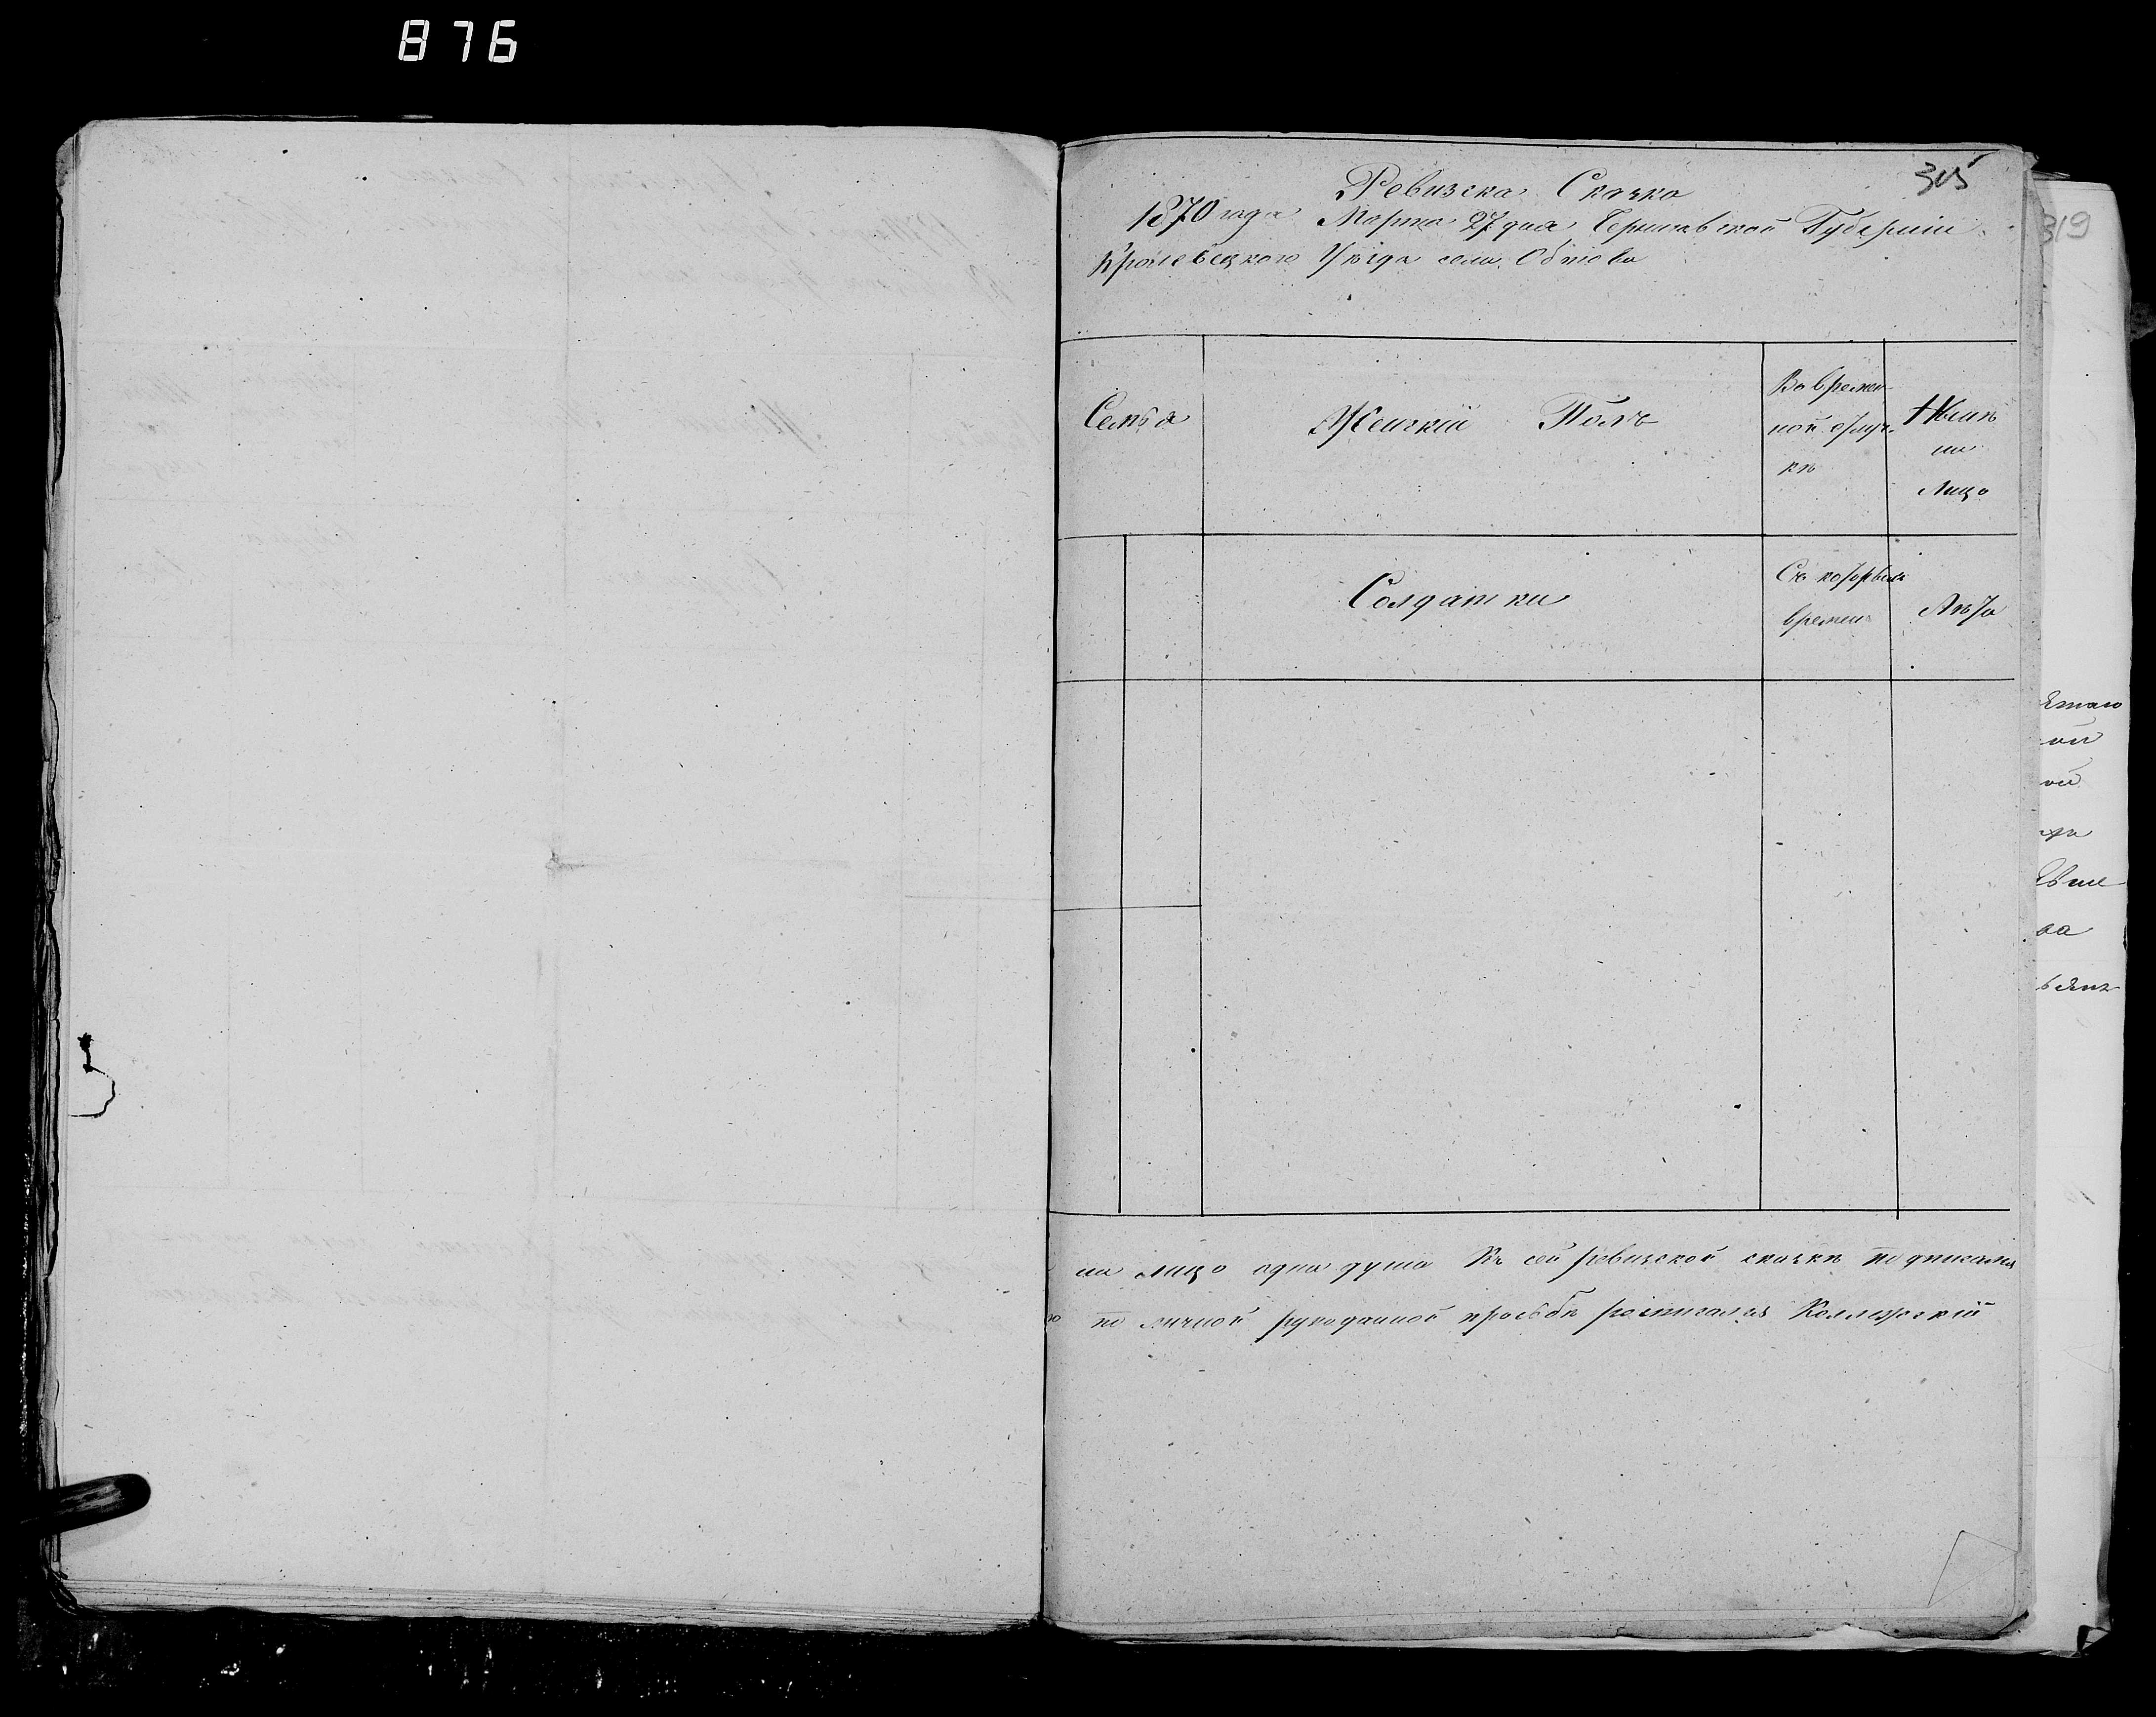 876
305
Ревизска Сказка
1870 года Марта 27 дня Черниговской Губернии
Кролевецкого Уѣзда села Обтова
Семья
Женский Полъ
Во времен-
ной отлуч-
кѣ
Нынѣ
на
Лицо
Солдатки
Съ котораго
времени
Лѣта
на лицо одна душа Къ сей ревизской сказкѣ подписался
по личной рукоданной просьбѣ росписался Коллежский
319
ва